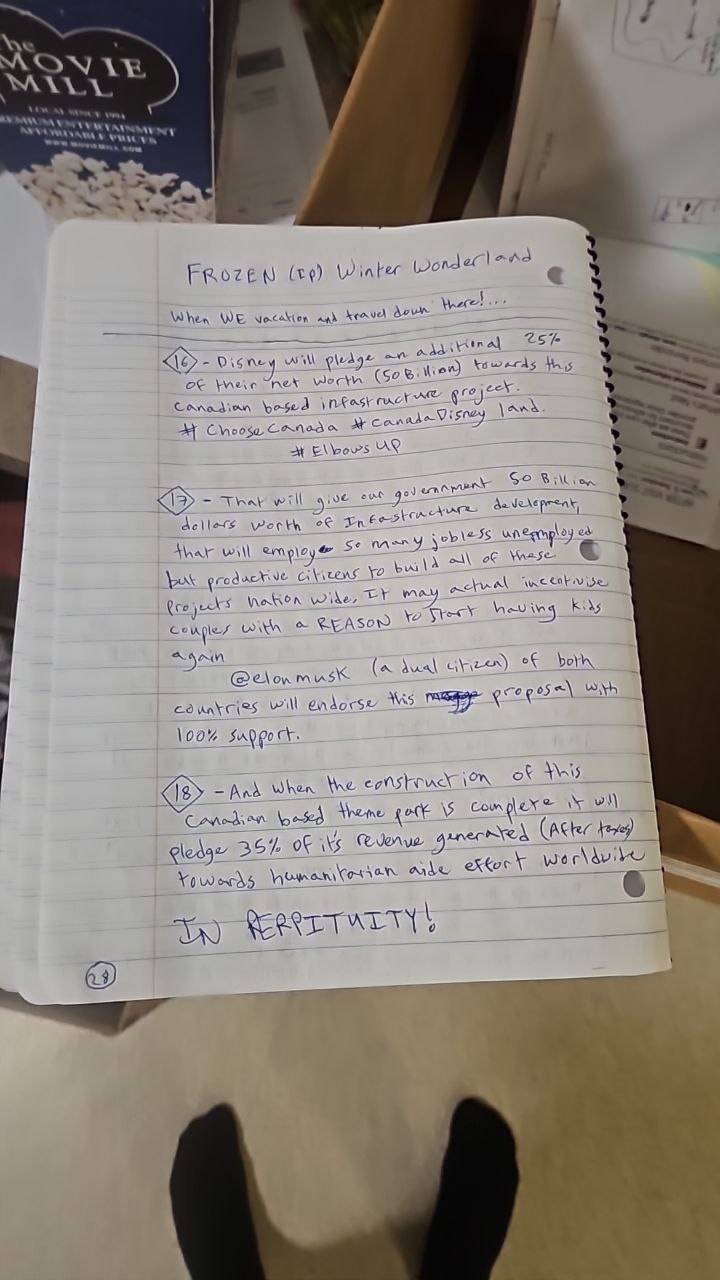 The
MOVIE
MILL
LOCAL SINCE 1994
PREMIUM ENTERTAINMENT
AFFORDABLE PRICES
WWW.MOVIEMILL.COM
FROZEN (IP) Winter Wonderland
When WE vacation and travel down there!...
16 - Disney will pledge an additional 25%
of their net worth (50 Billion) towards this
Canadian based infastructure project.
# Choose Canada # Canada Disney land.
# Elbows UP
17 - That will give our government 50 Billion
dollars worth of Infastructure development,
that will employ so many jobless unemployed
but productive citizens to build all of these
Projects nation wide, It may actual incentivise
couples with a REASON to start having kids
again
@elonmusk (a dual citizen) of both
countries will endorse this proposal with
100% support.
18 - And when the construction of this
Canadian based theme park is complete it will
pledge 35% of it's revenue generated (After taxes)
towards humanitarian aide effort worldwide
IN PERPITUITY!
28